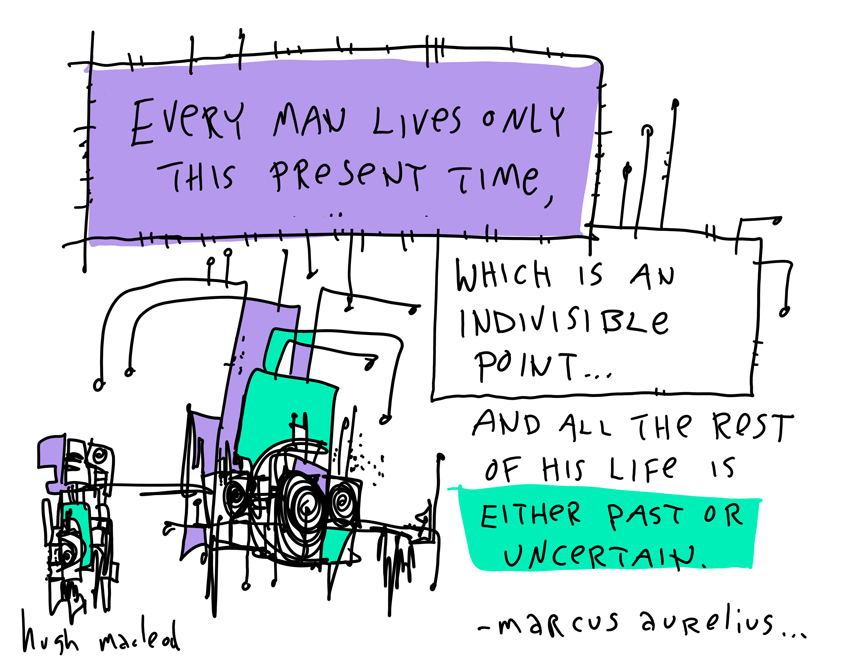 EVERY MAN LIVES ONLY
THIS PRESENT TIME,
WHICH IS AN
INDIVISIBLE
POINT...
AND ALL THE REST
OF HIS LIFE IS
EITHER PAST OR
UNCERTAIN.
-marcus aurelius...
hugh macleod